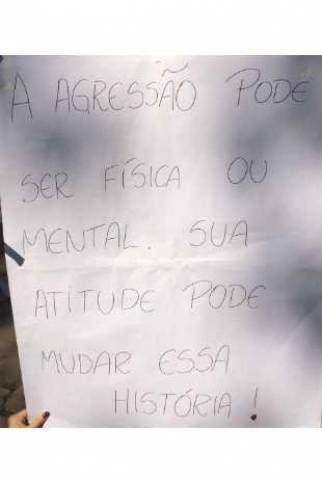 A AGRESSÃO PODE
SER FÍSICA OU
MENTAL. SUA
ATITUDE PODE
MUDAR ESSA
HISTÓRIA!